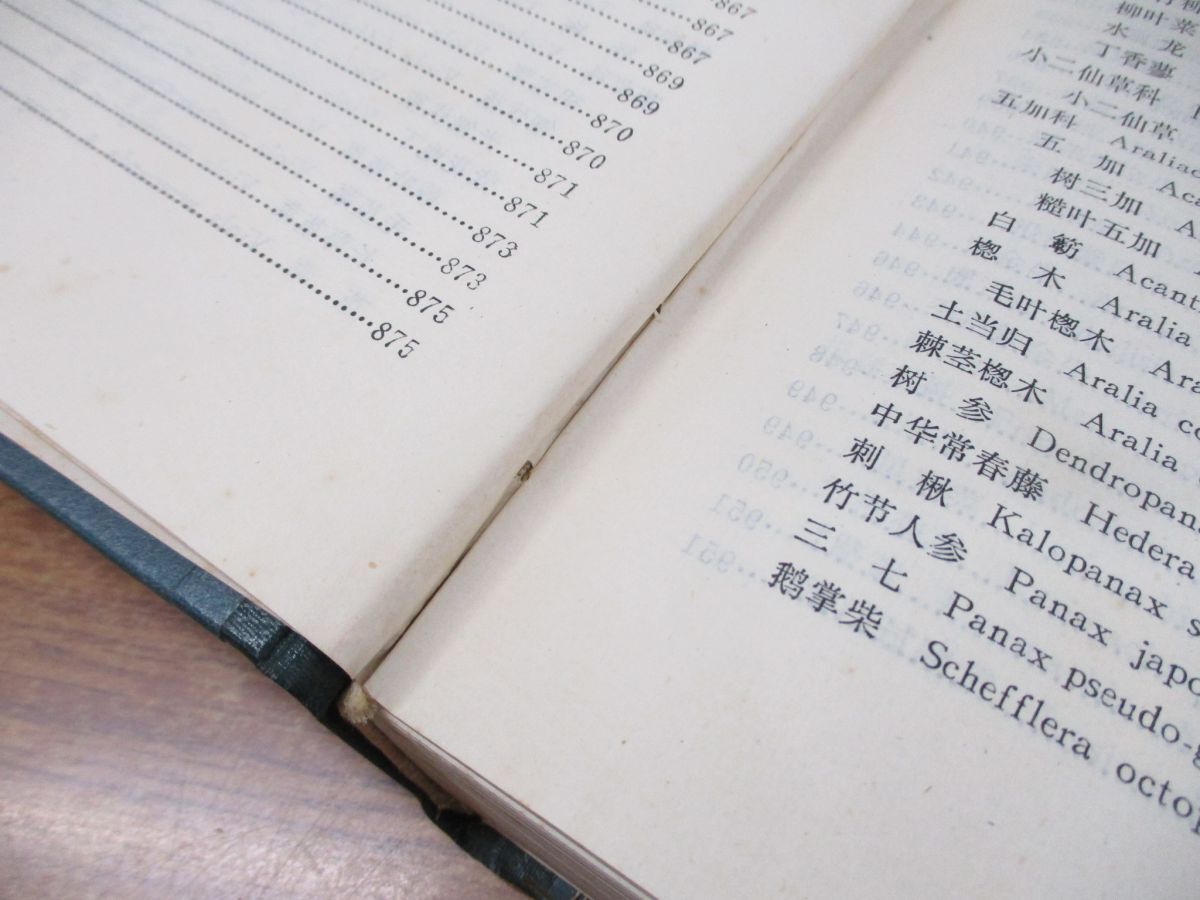 867
867
867
869
869
870
870
871
871
873
873
875
875
柳叶菜
水 龙
丁香蓼
小二仙草科
小二仙草
五加科 Araliac
五 加 Aca
树三加 A
糙叶五加
白 簕 Acant
楤 木 Aralia
毛叶楤木 Ara
土当归 Aralia co
棘茎楤木 Aralia
树 参 Dendropan
中华常春藤 Hedera
刺 楸 Kalopanax s
竹节人参 Panax japo
三 七 Panax pseudo-g
鹅掌柴 Schefflera octop